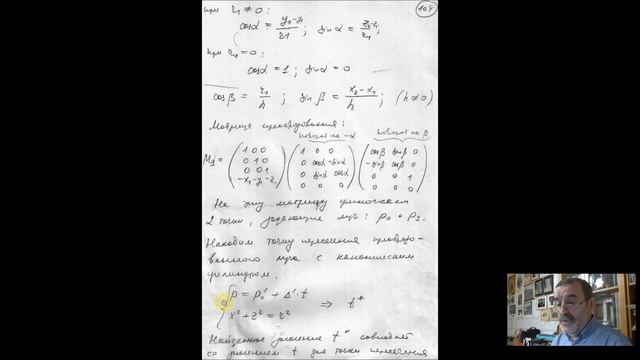 при r₁ ≠ 0:
104
cosα = (y₂-y₁)/r₁ ; sinα = (z₂-z₁)/r₁ ;
при r₁ = 0:
cosα = 1 ; sinα = 0
cosβ = r₁/h ; sinβ = (x₂-x₁)/h ; (h ≠ 0)
Матрица преобразования:
поворот на -α поворот на β
1 0 0 1 0 0 cosβ sinβ 0
M₁ = 0 1 0 0 cosα -sinα -sinβ cosβ 0
0 0 1 0 sinα cosα 0 0 1
-x₁ -y₁ -z₁ 0 0 0 0 0 0
На эту матрицу умножаем
2 точки, задающие луч: P₀ и P₁.
Находим точку пересечения преобразо-
ванного луча с каноническим
цилиндром.
P = P₀' + Δ'·t
⇒ t*
x² + z² = r²
Найденное значение t* совпадает
со значением t для точки пересечения